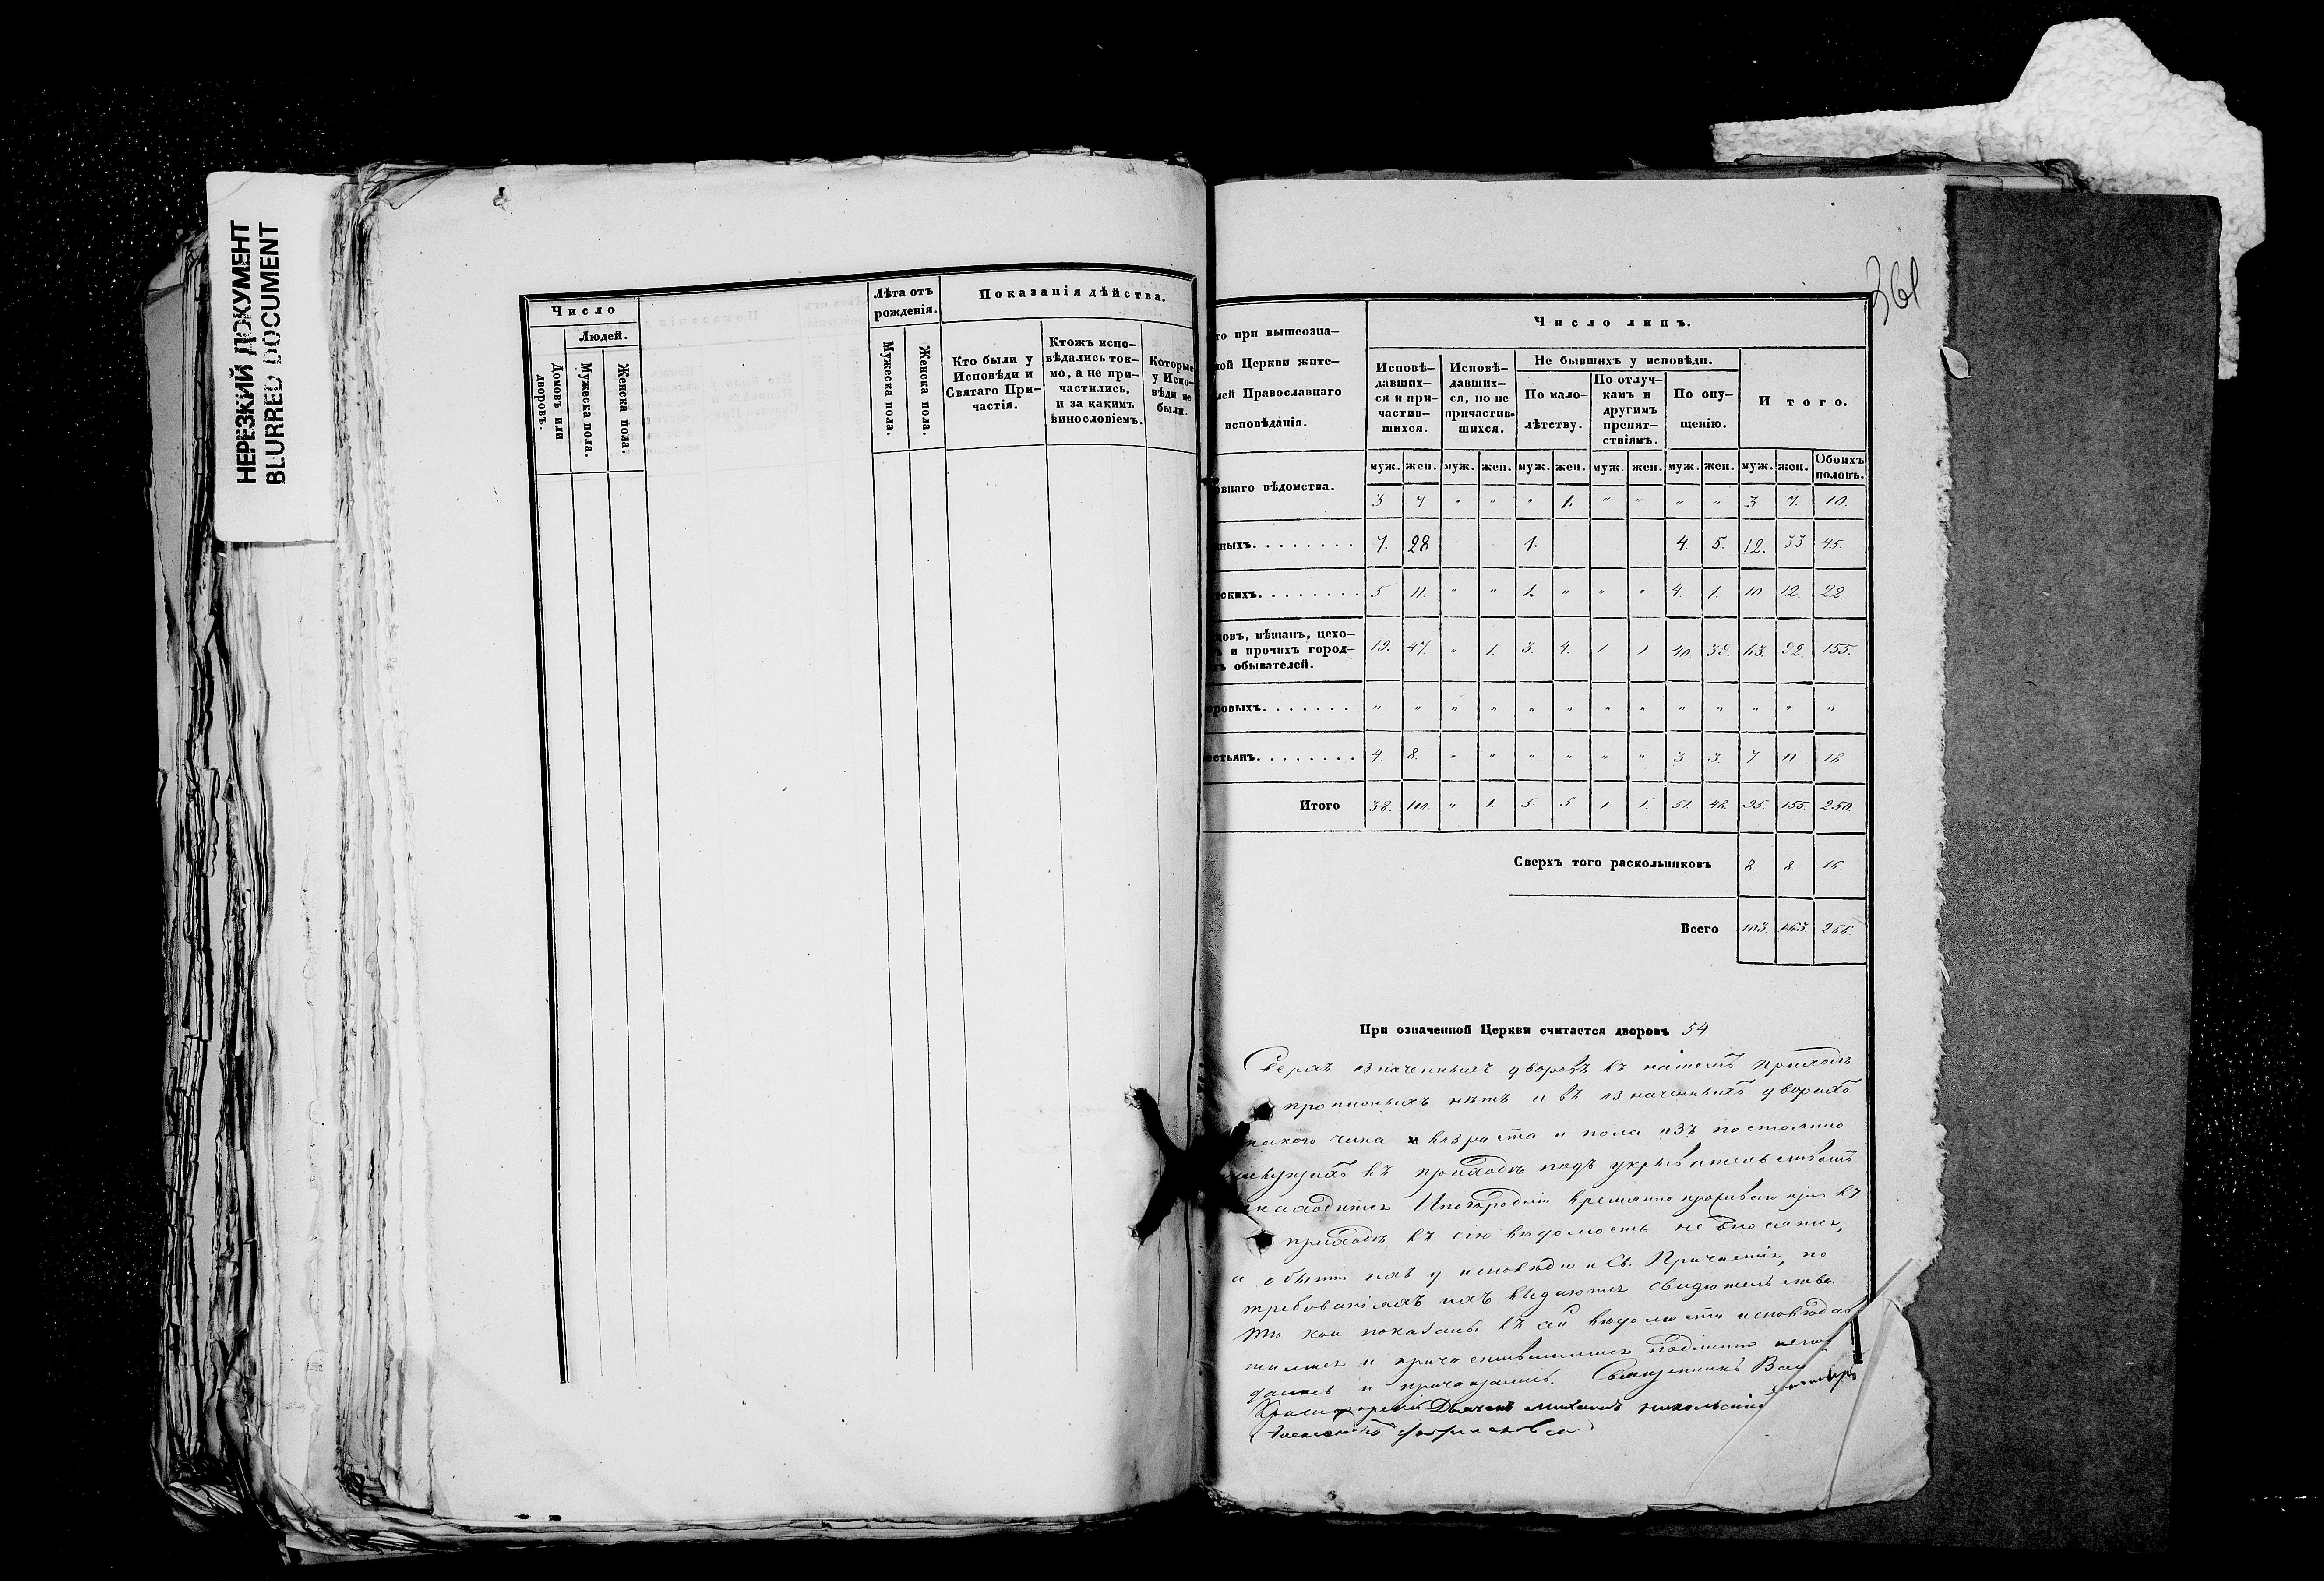 НЕРЕЗКИЙ ДОКУМЕНТ
BLURRED DOCUMENT
Число
Людей.
Домовъ или дворовъ.
Мужеска пола.
Женска пола.
Лѣта отъ рожденія.
Мужеска пола.
Женска пола.
Показанія дѣйства.
Кто были у
Исповѣди и
Святаго При-
частія.
Ктожъ испо-
вѣдались ток-
мо, а не при-
частились,
и за какимъ
винословіемъ.
Которые
у Испо-
вѣди не
были.
361
го при вышеозна-
ной Церкви жите-
лей Православнаго
исповѣданія.
Число лицъ.
Исповѣ-
давших-
ся и при-
частив-
шихся.
Исповѣ-
давших-
ся, но не
причастив-
шихся.
Не бывшихъ у исповѣди.
По мало-
лѣтству.
По отлуч-
камъ и
другимъ
препят-
ствіямъ.
По опу-
щенію.
Итого.
муж. жен. муж. жен. муж. жен. муж. жен. муж. жен. муж. жен. Обоихъ половъ.
овнаго вѣдомства. 3 7 " " " 1. " " " " 3 7. 10.
ныхъ. 7. 28 1. 4. 5. 12. 33 45.
тскихъ. 5 11. " " 1. " " " 4. 1. 10 12. 22.
цовъ, мѣщанъ, цехо-
и прочихъ город-
обывателей. 19. 47. " 1. 3. 4. 1 1. 40. 39. 63. 92. 155.
оровыхъ. " " " " " " " " " " " " "
естьянъ. 4. 8. " " " " " " 3 3. 7 11 18
Итого 38. 100. " 1. 5. 5. 1 1. 51. 48. 95. 155. 250.
Сверхъ того раскольниковъ 8. 8. 16.
Всего 103. 163. 266.
При означенной Церкви считается дворовъ 54
Сверхъ означенныхъ дворовъ въ нашемъ приходѣ
прописныхъ нѣтъ и въ означенныхъ дворахъ
какого чина и возраста и пола изъ постоянно
живущихъ въ приходѣ подъ укрывательствомъ
находится Иногородніе временно проживающіе въ
приходѣ въ сію вѣдомость не вносятся,
а о бытіи ихъ у исповѣди и Св. Причастія, по
требованіямъ ихъ выдаются свидѣтельства.
Тѣ кои показаны въ сей вѣдомости исповѣдав-
шимися и причастившимися подлинно испов
дались и причащались. Священникъ Вас
Красногорскій Дьячекъ Михаилъ Никольскій